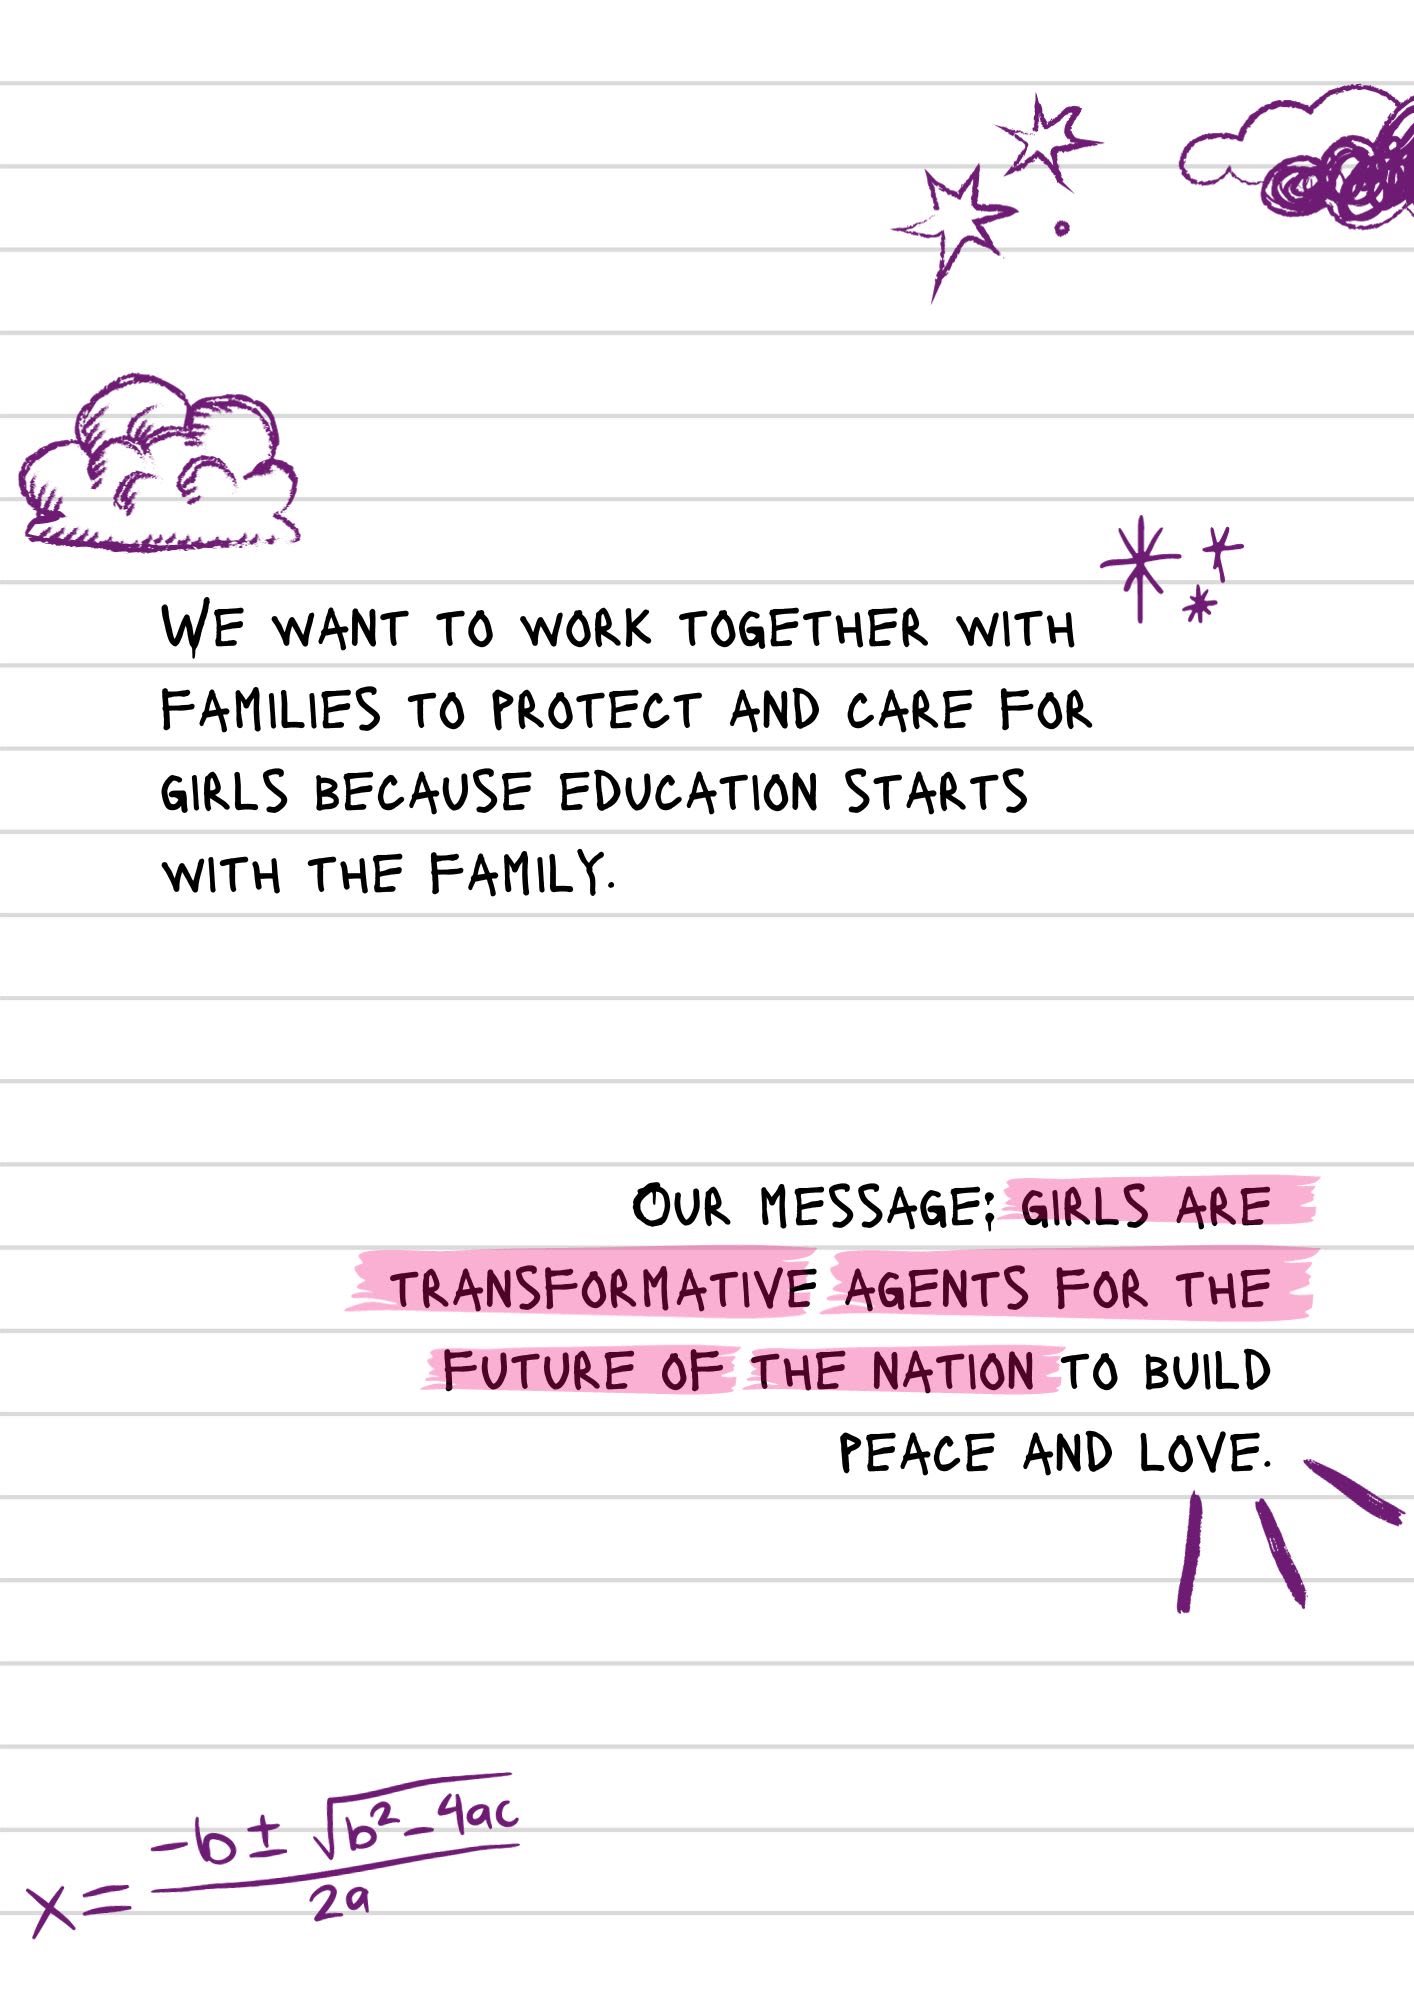 We want to work together with
families to protect and care for
girls because education starts
with the family.
Our message: girls are
transformative agents for the
future of the nation to build
peace and love.
x = -b ± √b² - 4ac
2a